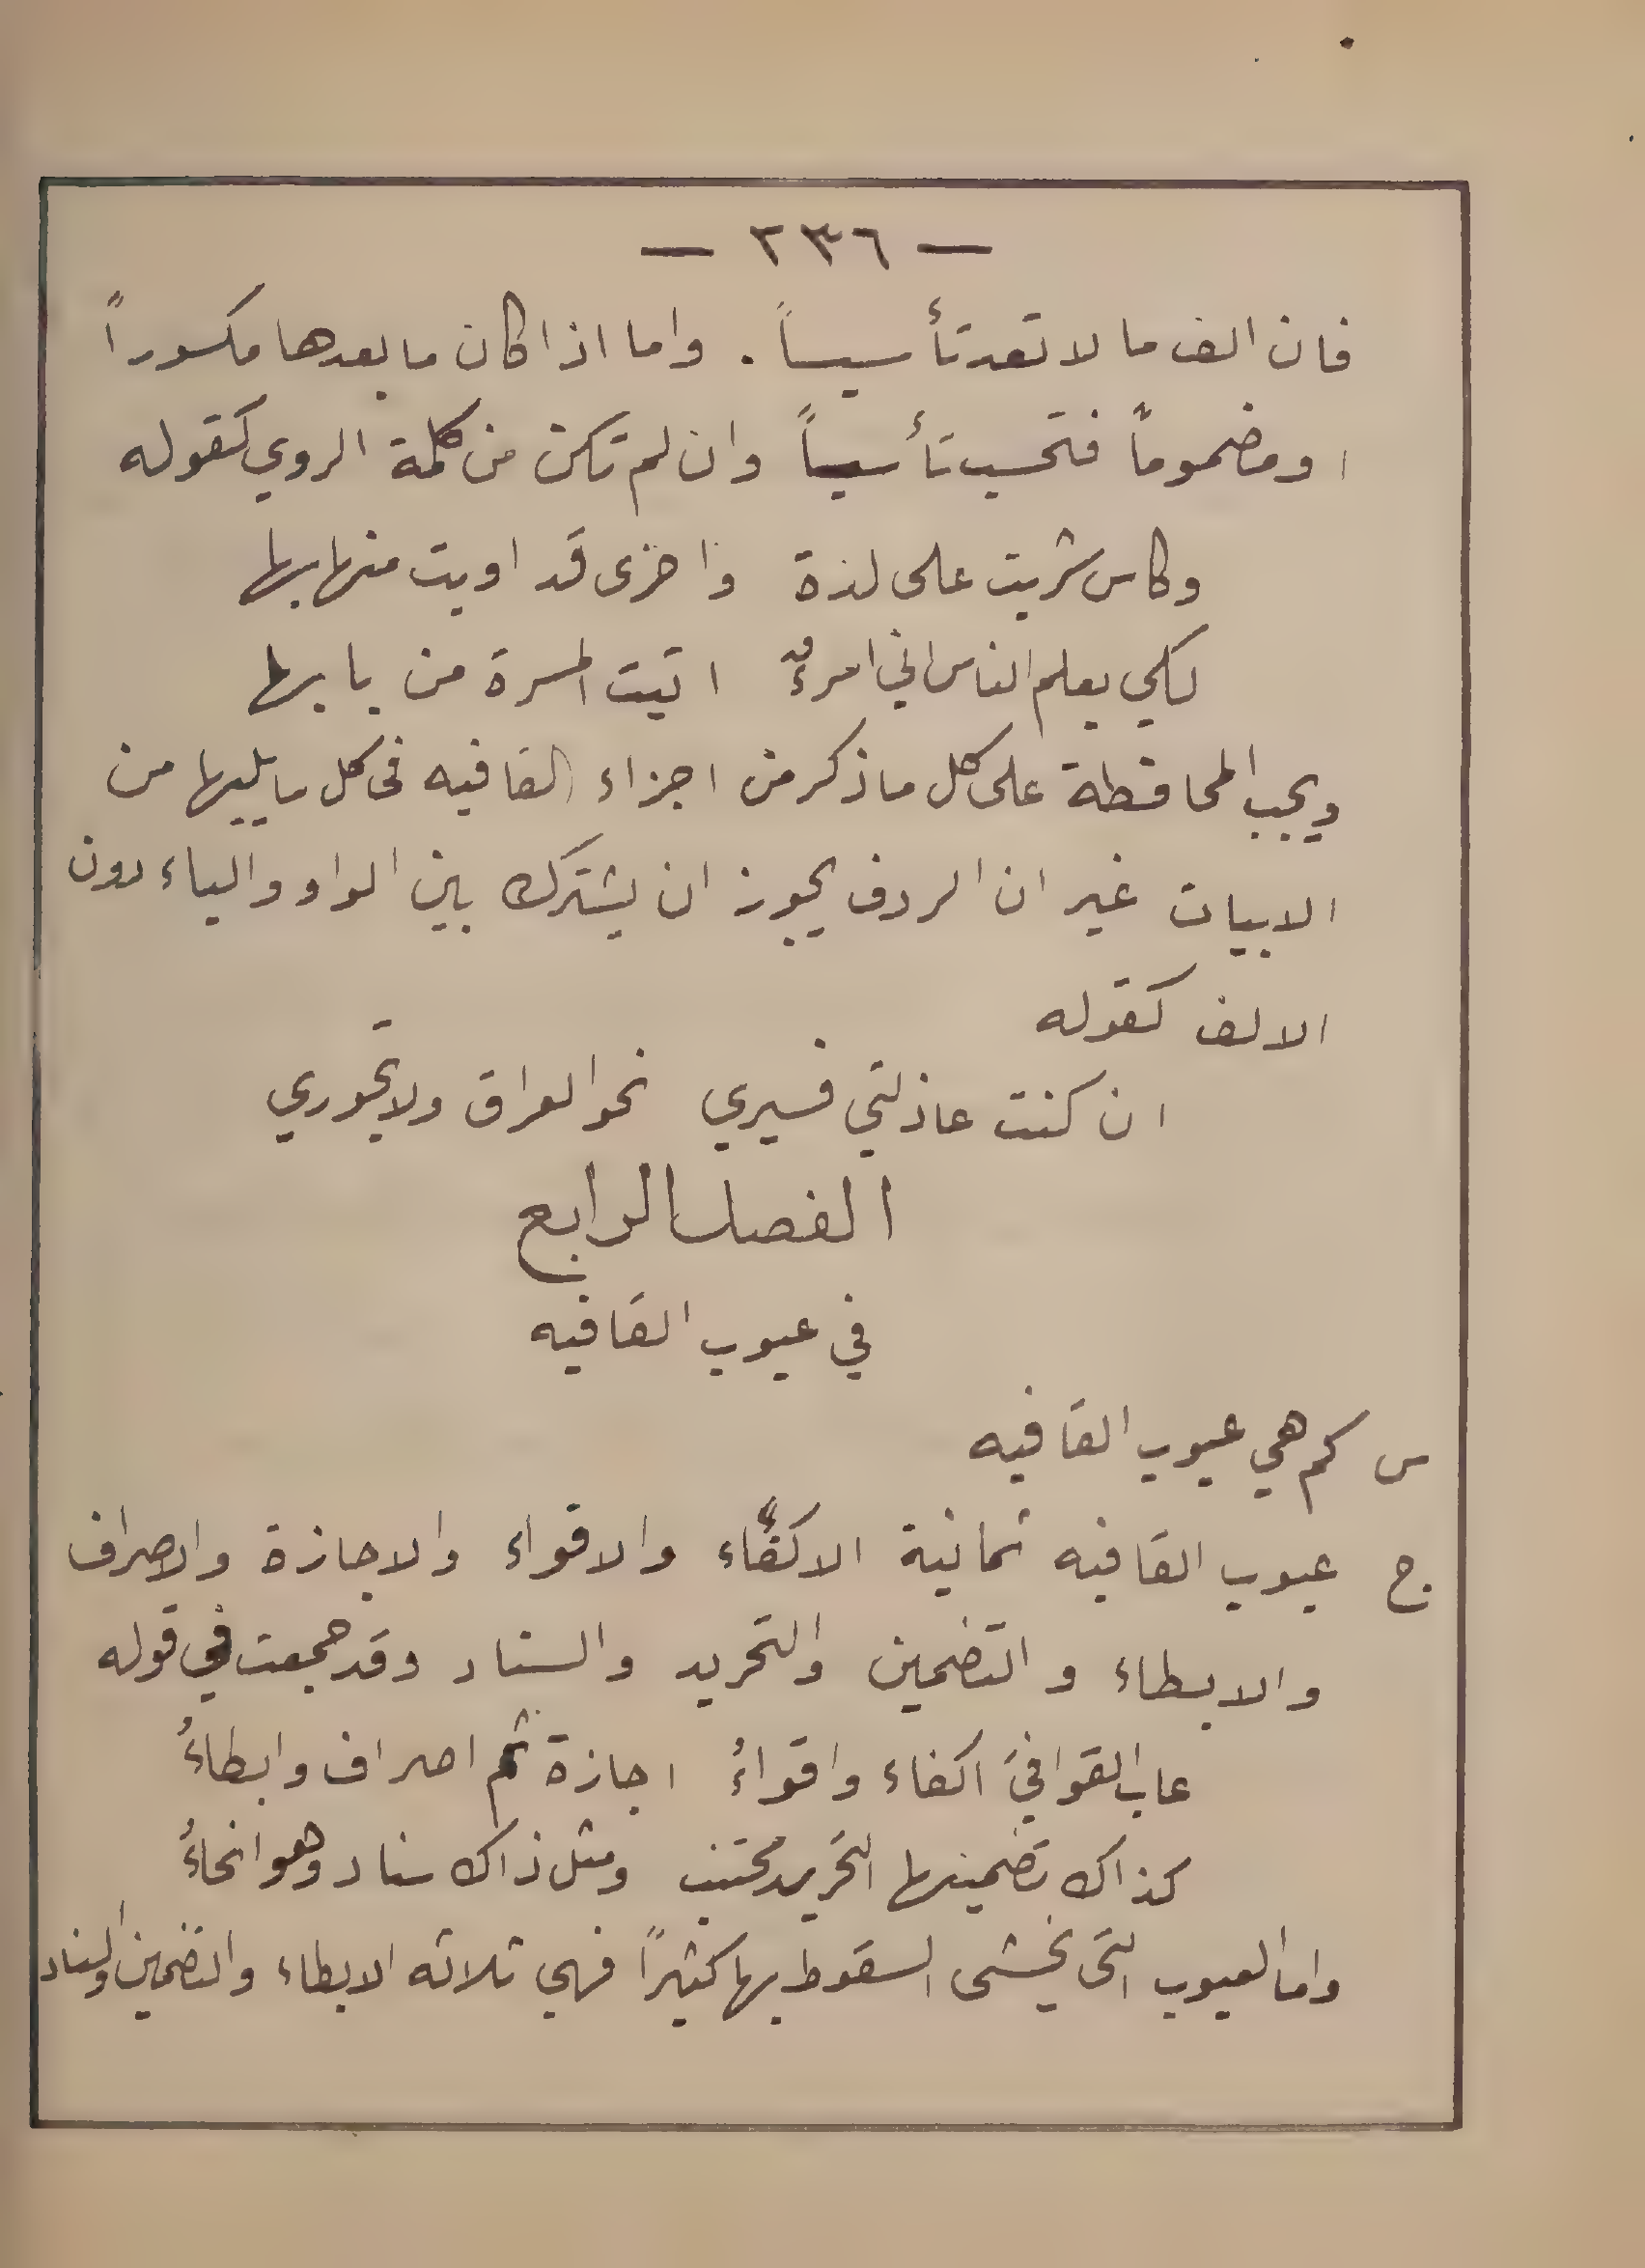 — ٢٣٦ —
فان الف ما لا تعد تأسيساً . واما اذا كان ما بعدها مكسوراً
او مضموماً فتحسب تأسيساً وان لم تكن من كلمة الروي كقوله
وكاس شربت على لذة واخرى قد اويت منها بها
لكي يعلم الناس اني امرءٌ اتيت المسرة من بابها
ويجب المحافظة على كل ما ذكر من اجزاء القافيه فى كل ما يليها من
الابيات غير ان الردف يجوز ان يشترك بين الواو والياء دون
الالف كقوله
ان كنت عاذلتي فسيري نحو العراق ولا تحوري
الفصل الرابع
في عيوب القافيه
س كم هي عيوب القافيه
ج عيوب القافيه ثمانية الاكفاء والاقواء والاجازة والاصراف
والايطاء والتضمين والتحريد والسناد وقد جمعت في قوله
عاب القوافيَ اكفاء واقواءُ اجازة ثم اصراف وايطاءُ
كذاك تضمينها التحريد مجتنب ومثل ذاك سناد وهو انحاءُ
واما العيوب التى يخشى السقوط بها كثيراً فهي ثلاثه الايطاء والتضمين والسناد